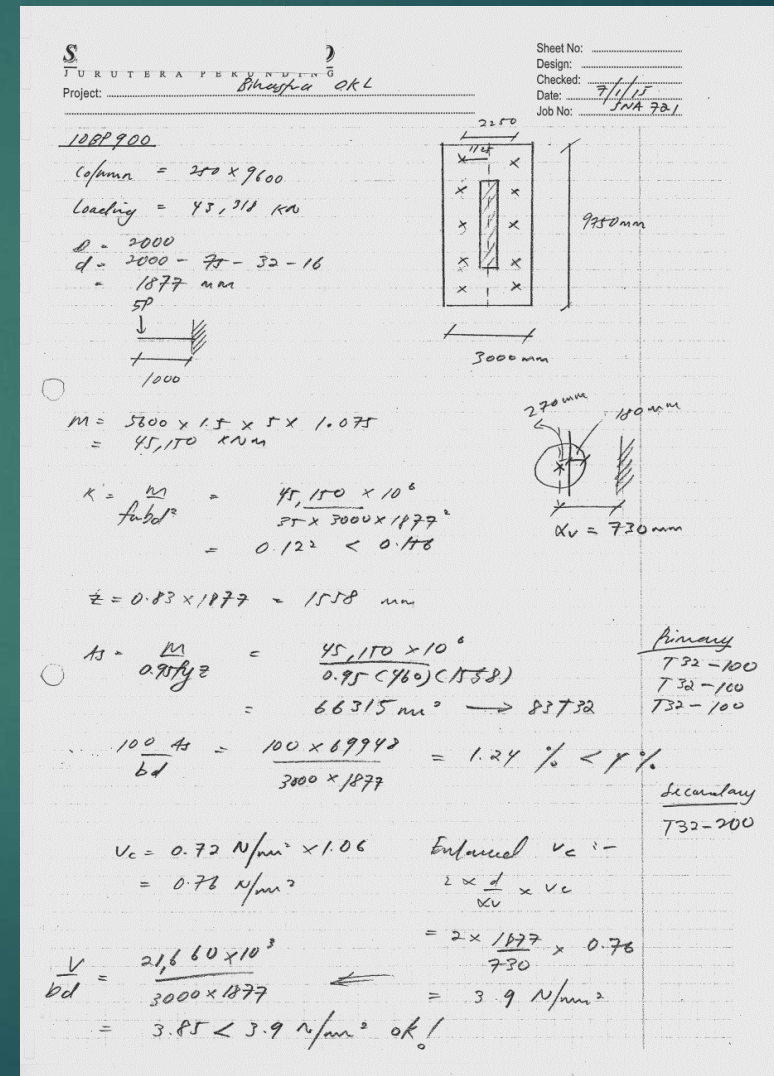 S
JURUTERA PERUNDING
Project:
OKL
Sheet No:
Design:
Checked:
Date: 7/1/15
Job No: JNA 721
10BP900
Column = 250 x 9600
Loading = 43,318 KN
D = 2000
d = 2000 - 75 - 32 - 16
= 1877 mm
5P
1000
2250
1125
9750mm
3000mm
M = 5600 x 1.5 x 5 x 1.075
= 45,150 KNm
270mm
180mm
αv = 730mm
K = M / fcubd² = 45,150 x 10⁶ / 35 x 3000 x 1877²
= 0.122 < 0.156
z = 0.83 x 1877 = 1558 mm
As = M / 0.95fyz = 45,150 x 10⁶ / 0.95 (460)(1558)
= 66315 mm² → 83T32
Primary
T32-100
T32-100
T32-100
100 As / bd = 100 x 69948 / 3000 x 1877 = 1.24 % < 4 %
Secondary
T32-200
Vc = 0.72 N/mm² x 1.06
= 0.76 N/mm²
Enhanced Vc :-
2 x d / αv x Vc
= 2 x 1877 / 730 x 0.76
= 3.9 N/mm²
V / bd = 21,660 x 10³ / 3000 x 1877
= 3.85 < 3.9 N/mm² ok!